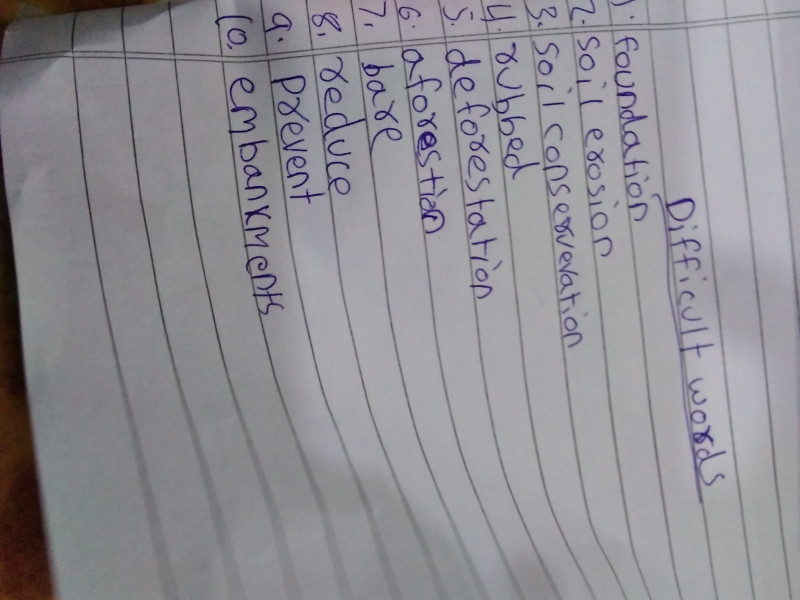 Difficult words
1. foundation
2. soil erosion
3. soil conservevation
4. rubbed
5. deforestation
6. aforestion
7. bare
8. reduce
9. prevent
10. embankments